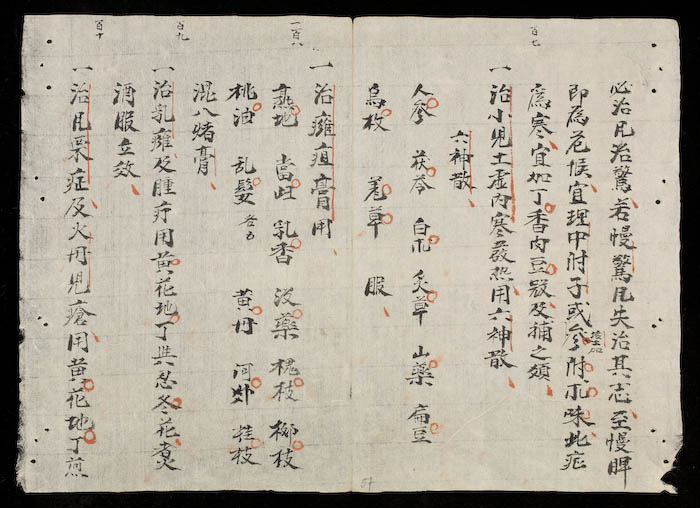 必治凡治驚若慢驚凡失治其志至慢脾
即為危候宜理中附子或參附朮味此症
為寒宜加丁香肉豆蔻及補之類
百七
一治小兒土虛內寒發熱用六神散
六神散
人參 茯苓 白朮 炙草 山藥 扁豆
烏枚 姜草 服
百八
一治癰疽膏用
熟地 當歸 乳香 沒藥 槐枝 柳枝
桃油 乱髮 黃丹 桂枝
混入猪膏
百九
一治乳癰及腫疔用黃花地丁與忍冬花煮
酒服立效
百十
一治凡栗症及火丹兒瘡用黃花地丁煎
54